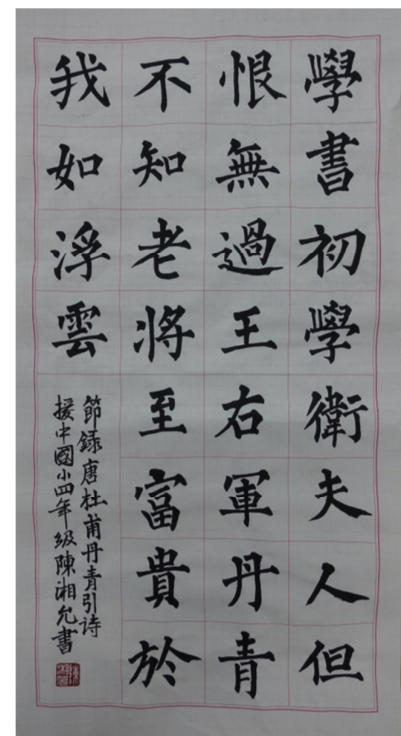 學書初學衛夫人但
恨無過王右軍丹青
不知老將至富貴於
我如浮雲
節錄唐杜甫丹青引诗
接中國小四年級陳湘允書